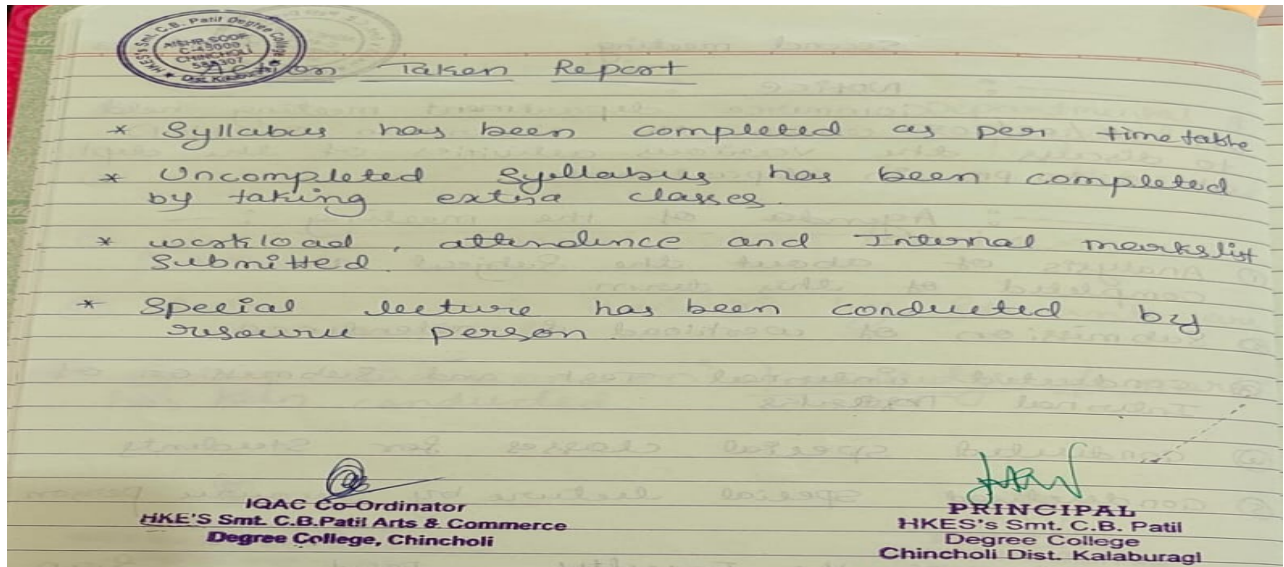 HKE's Smt. C.B. Patil Degree College
AISHE CODE
C-45009
CHINCHOLI
585307
Dist. Kalaburagi
Action Taken Report
* Syllabus has been completed as per timetable
* Uncompleted Syllabus has been completed
by taking extra classes.
* workload, attendence and Internal markslist
Submitted.
* Special lecture has been conducted by
resource person
IQAC Co-Ordinator
HKE'S Smt. C.B.Patil Arts & Commerce
Degree College, Chincholi
PRINCIPAL
HKES's Smt. C.B. Patil
Degree College
Chincholi Dist. Kalaburagi